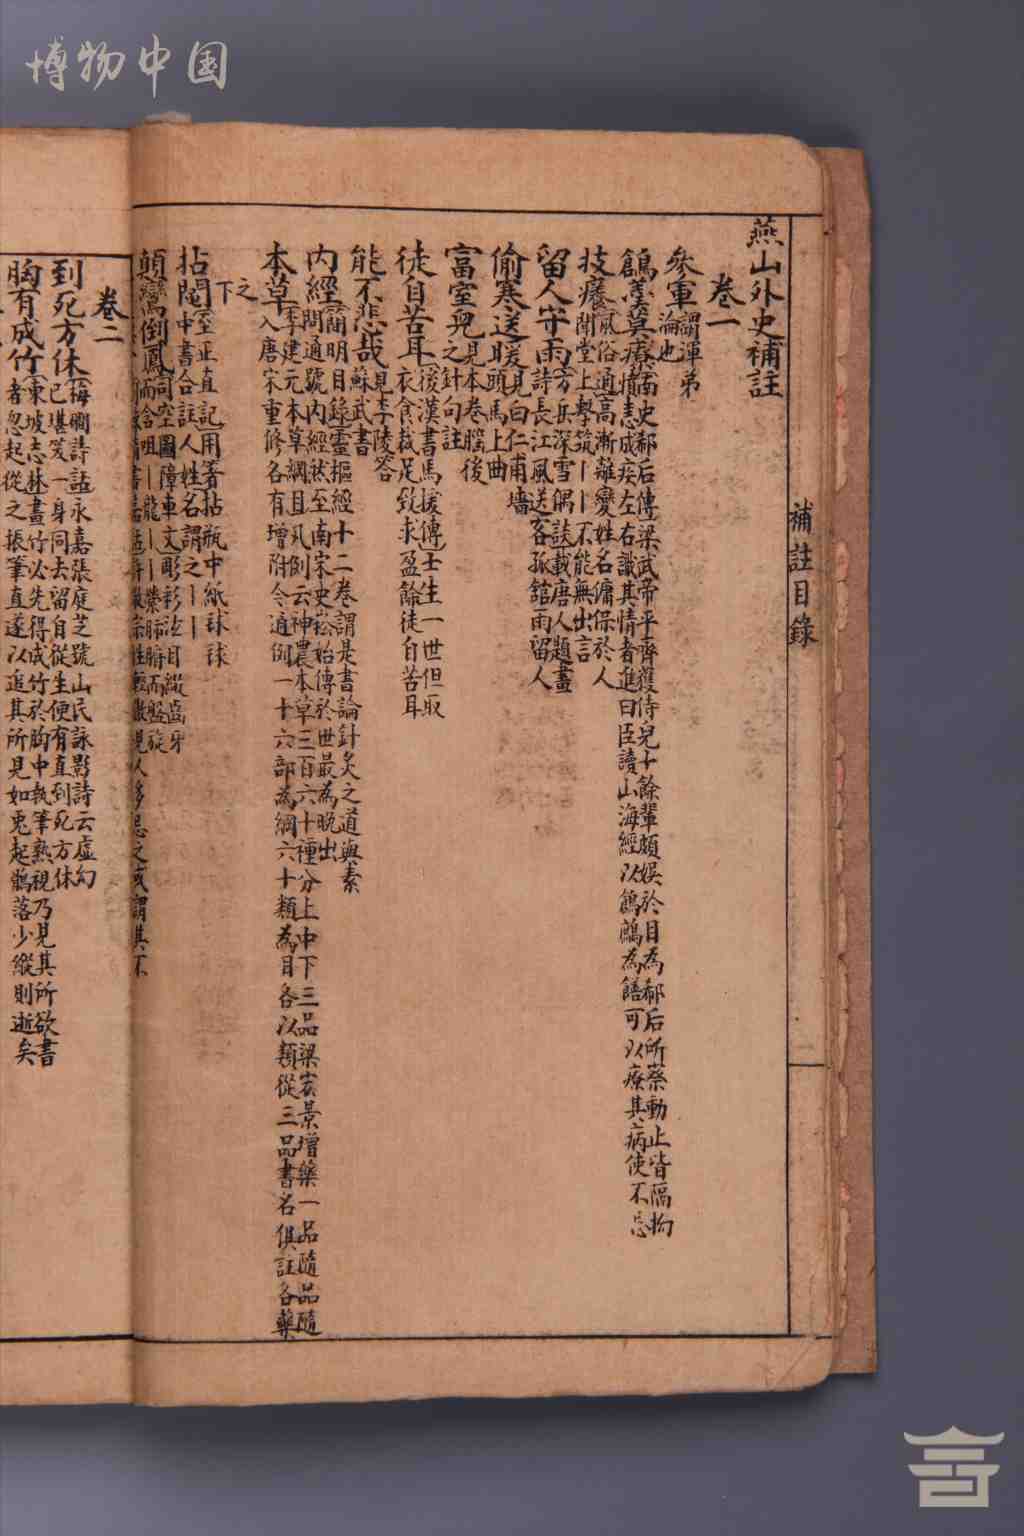 博物中国
補註目錄
燕山外史補註
卷一
參軍謂渾弟
論也
鶬羹莫療南史郗后傳梁武帝平齊獲侍兒十餘輩頗娛於目為郗后所察動止皆隔拘
憤恚成疾左右識其情者進曰臣讀山海經以鶬鶊為饍可以療其病使不忌
技癢風俗通高漸離變姓名傭保於人
聞堂上擊筑丨丨不能無出言
留人守雨方岳深雪偶談載唐人題畫
詩長江風送客孤舘雨留人
偷寒送暖見白仁甫牆
頭馬上曲
富室兒見本卷膛後
之針句註
徒自苦耳後漢書馬援傳士生一世但取
衣食裁足致求盈餘徒自苦耳
能不悲哉見李陵答
蘇武書
內經蕳明目錄靈樞經十二卷謂是書論針灸之道與素
問通號內經然至南宋史崧始傳於世最為晚出
本草李建元本草綱目凡例云神農本草三百六十種分上中下三品梁宏景增藥一品隨品隨
入唐宋重修各有增附今通例一十六部為綱六十類為目各以類從三品書名俱註各藥
之
下
拈鬮室正直記用箸拈瓶中紙毬毬
中書合註人姓名謂之丨丨
顛鸞倒鳳司空圖障車文彫衫泣目綴齒牙
而含咀丨龍丨丨縈肺腑而盤旋
卷二
到死方休梅磵詩話永嘉張庭芝號山民詠影詩云虛幻
已堪笑一身同去留自從生便有直到死方休
胸有成竹東坡志林畫竹必先得成竹於胸中執筆熟視乃見其所欲畫
者忽起從之振筆直遂以追其所見如兎起鶻落少縱則逝矣